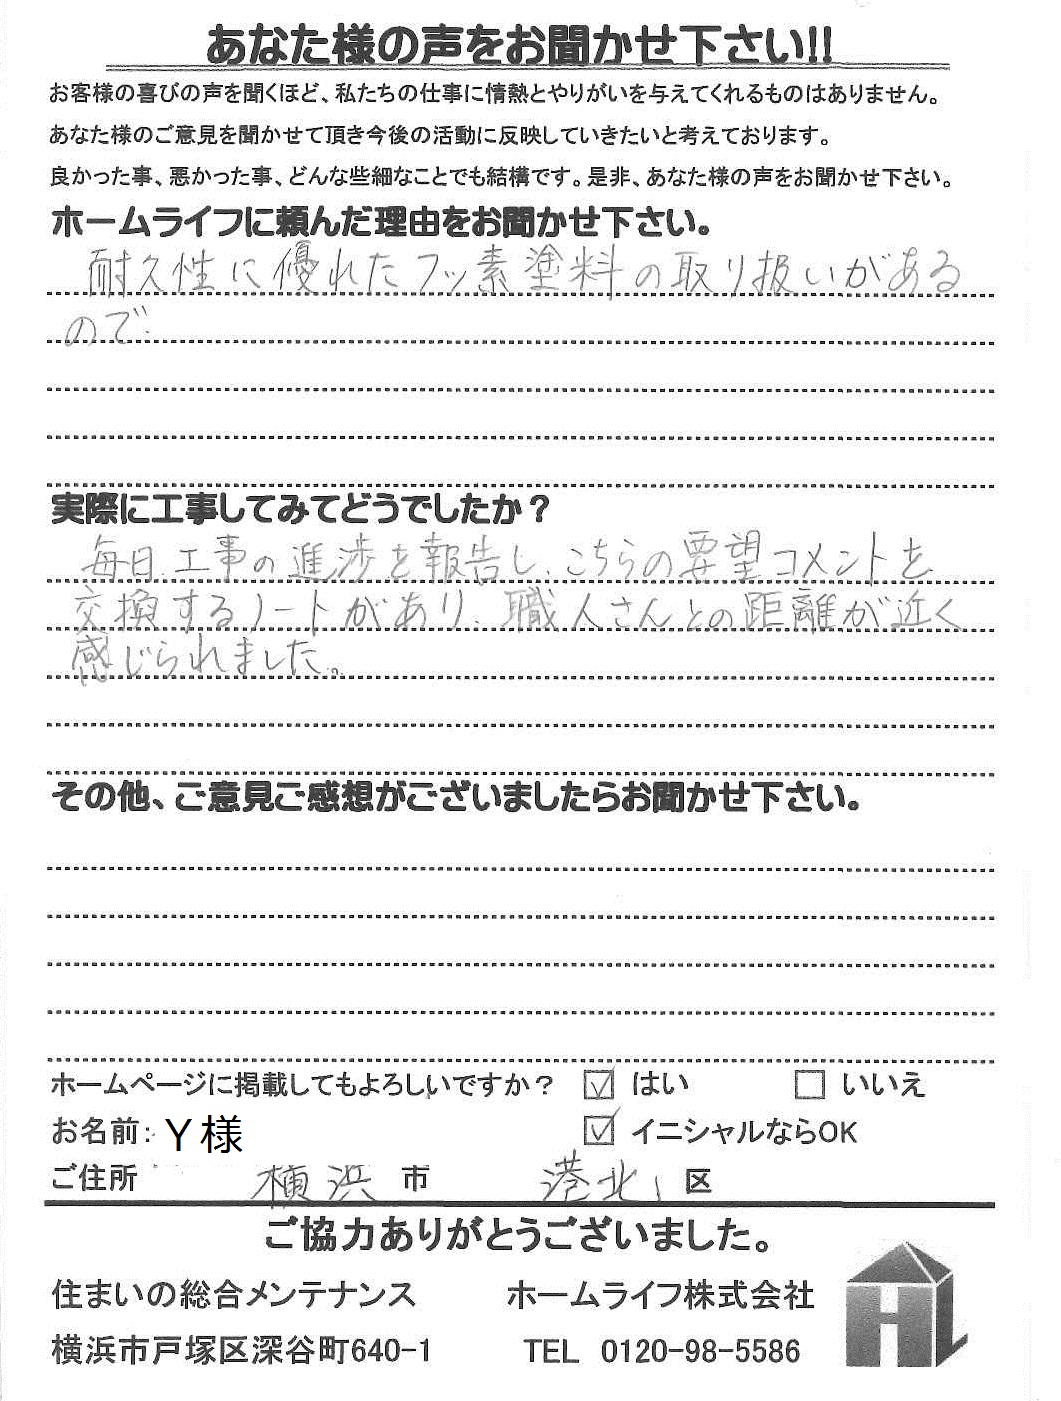 あなた様の声をお聞かせ下さい!!
お客様の喜びの声を聞くほど、私たちの仕事に情熱とやりがいを与えてくれるものはありません。
あなた様のご意見を聞かせて頂き今後の活動に反映していきたいと考えております。
良かった事、悪かった事、どんな些細なことでも結構です。是非、あなた様の声をお聞かせ下さい。
ホームライフに頼んだ理由をお聞かせ下さい。
耐久性に優れたフッ素塗料の取り扱いがある
ので
実際に工事してみてどうでしたか？
毎日、工事の進渉を報告し、こちらの要望コメントを
交換するノートがあり、職人さんとの距離が近く
感じられました。
その他、ご意見ご感想がございましたらお聞かせ下さい。
ホームページに掲載してもよろしいですか？ はい いいえ
お名前: Y様 イニシャルならOK
ご住所 横浜 市 港北 区
ご協力ありがとうございました。
住まいの総合メンテナンス ホームライフ株式会社
横浜市戸塚区深谷町640-1 TEL 0120-98-5586
HL